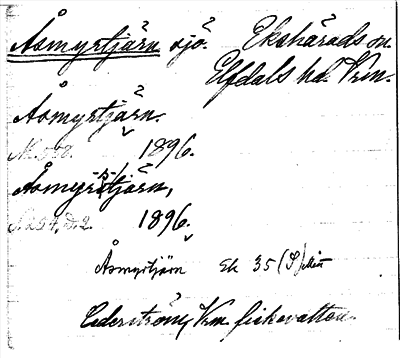 Åsmyrtjärn sjö. Ekshärads sn.
Elfdals hd. Vrm.
Åsmyrtjärn.
1896.
Åsmyrstjärn,
S. 254, d. 2. 1896.
Åsmyrtjärn Ek 35 (S)
Cederström, Vrm. fiskevatten.